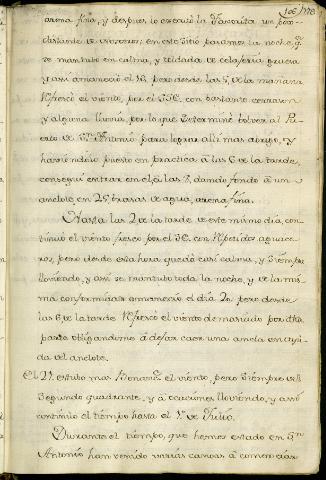 106/178
arena fina, y despues lo executó la Favorita un poco
distante de nosotros; en este sitio paramos la noche, q.e
se mantubo en calma, y toldada de celageria gruesa
y asi amaneció el 18, pero desde las 5 de la mañana
refrescó el viento, por el SSE. con bastante cerrazon
y alguna lluvia por lo que determiné bolver al Pu
erto de S.n Antonio para lograr allí mas abrigo, y
haviendolo puesto en practica á las 6 de la tarde,
consegui entrar en el, á las 8, dando fondo á un
anclote en 25 brazas de agua, arena fina.
Hasta las 2 de la tarde de este mismo dia, con
tinuó el viento fresco por el SE. con repetidos aguace
ros, pero desde esta hora quedó casi calma, y siempre
lloviendo, y asi se mantubo toda la noche, y de la mis
ma conformidad amaneció el dia 20 pero desde
las 6 de la tarde refrescó el viento demasiado por dha
parte obligandome á dejar caer una ancla en ayu
da del anclote.
El 21 estubo mas bonancible el viento, pero siempre del
segundo quadrante, y á ocaciones lloviendo, y asi
continuó el tiempo hasta el 1.o de Julio.
Durante el tiempo, que hemos estado en S.n
Antonio han venido varias canoas á comerciar